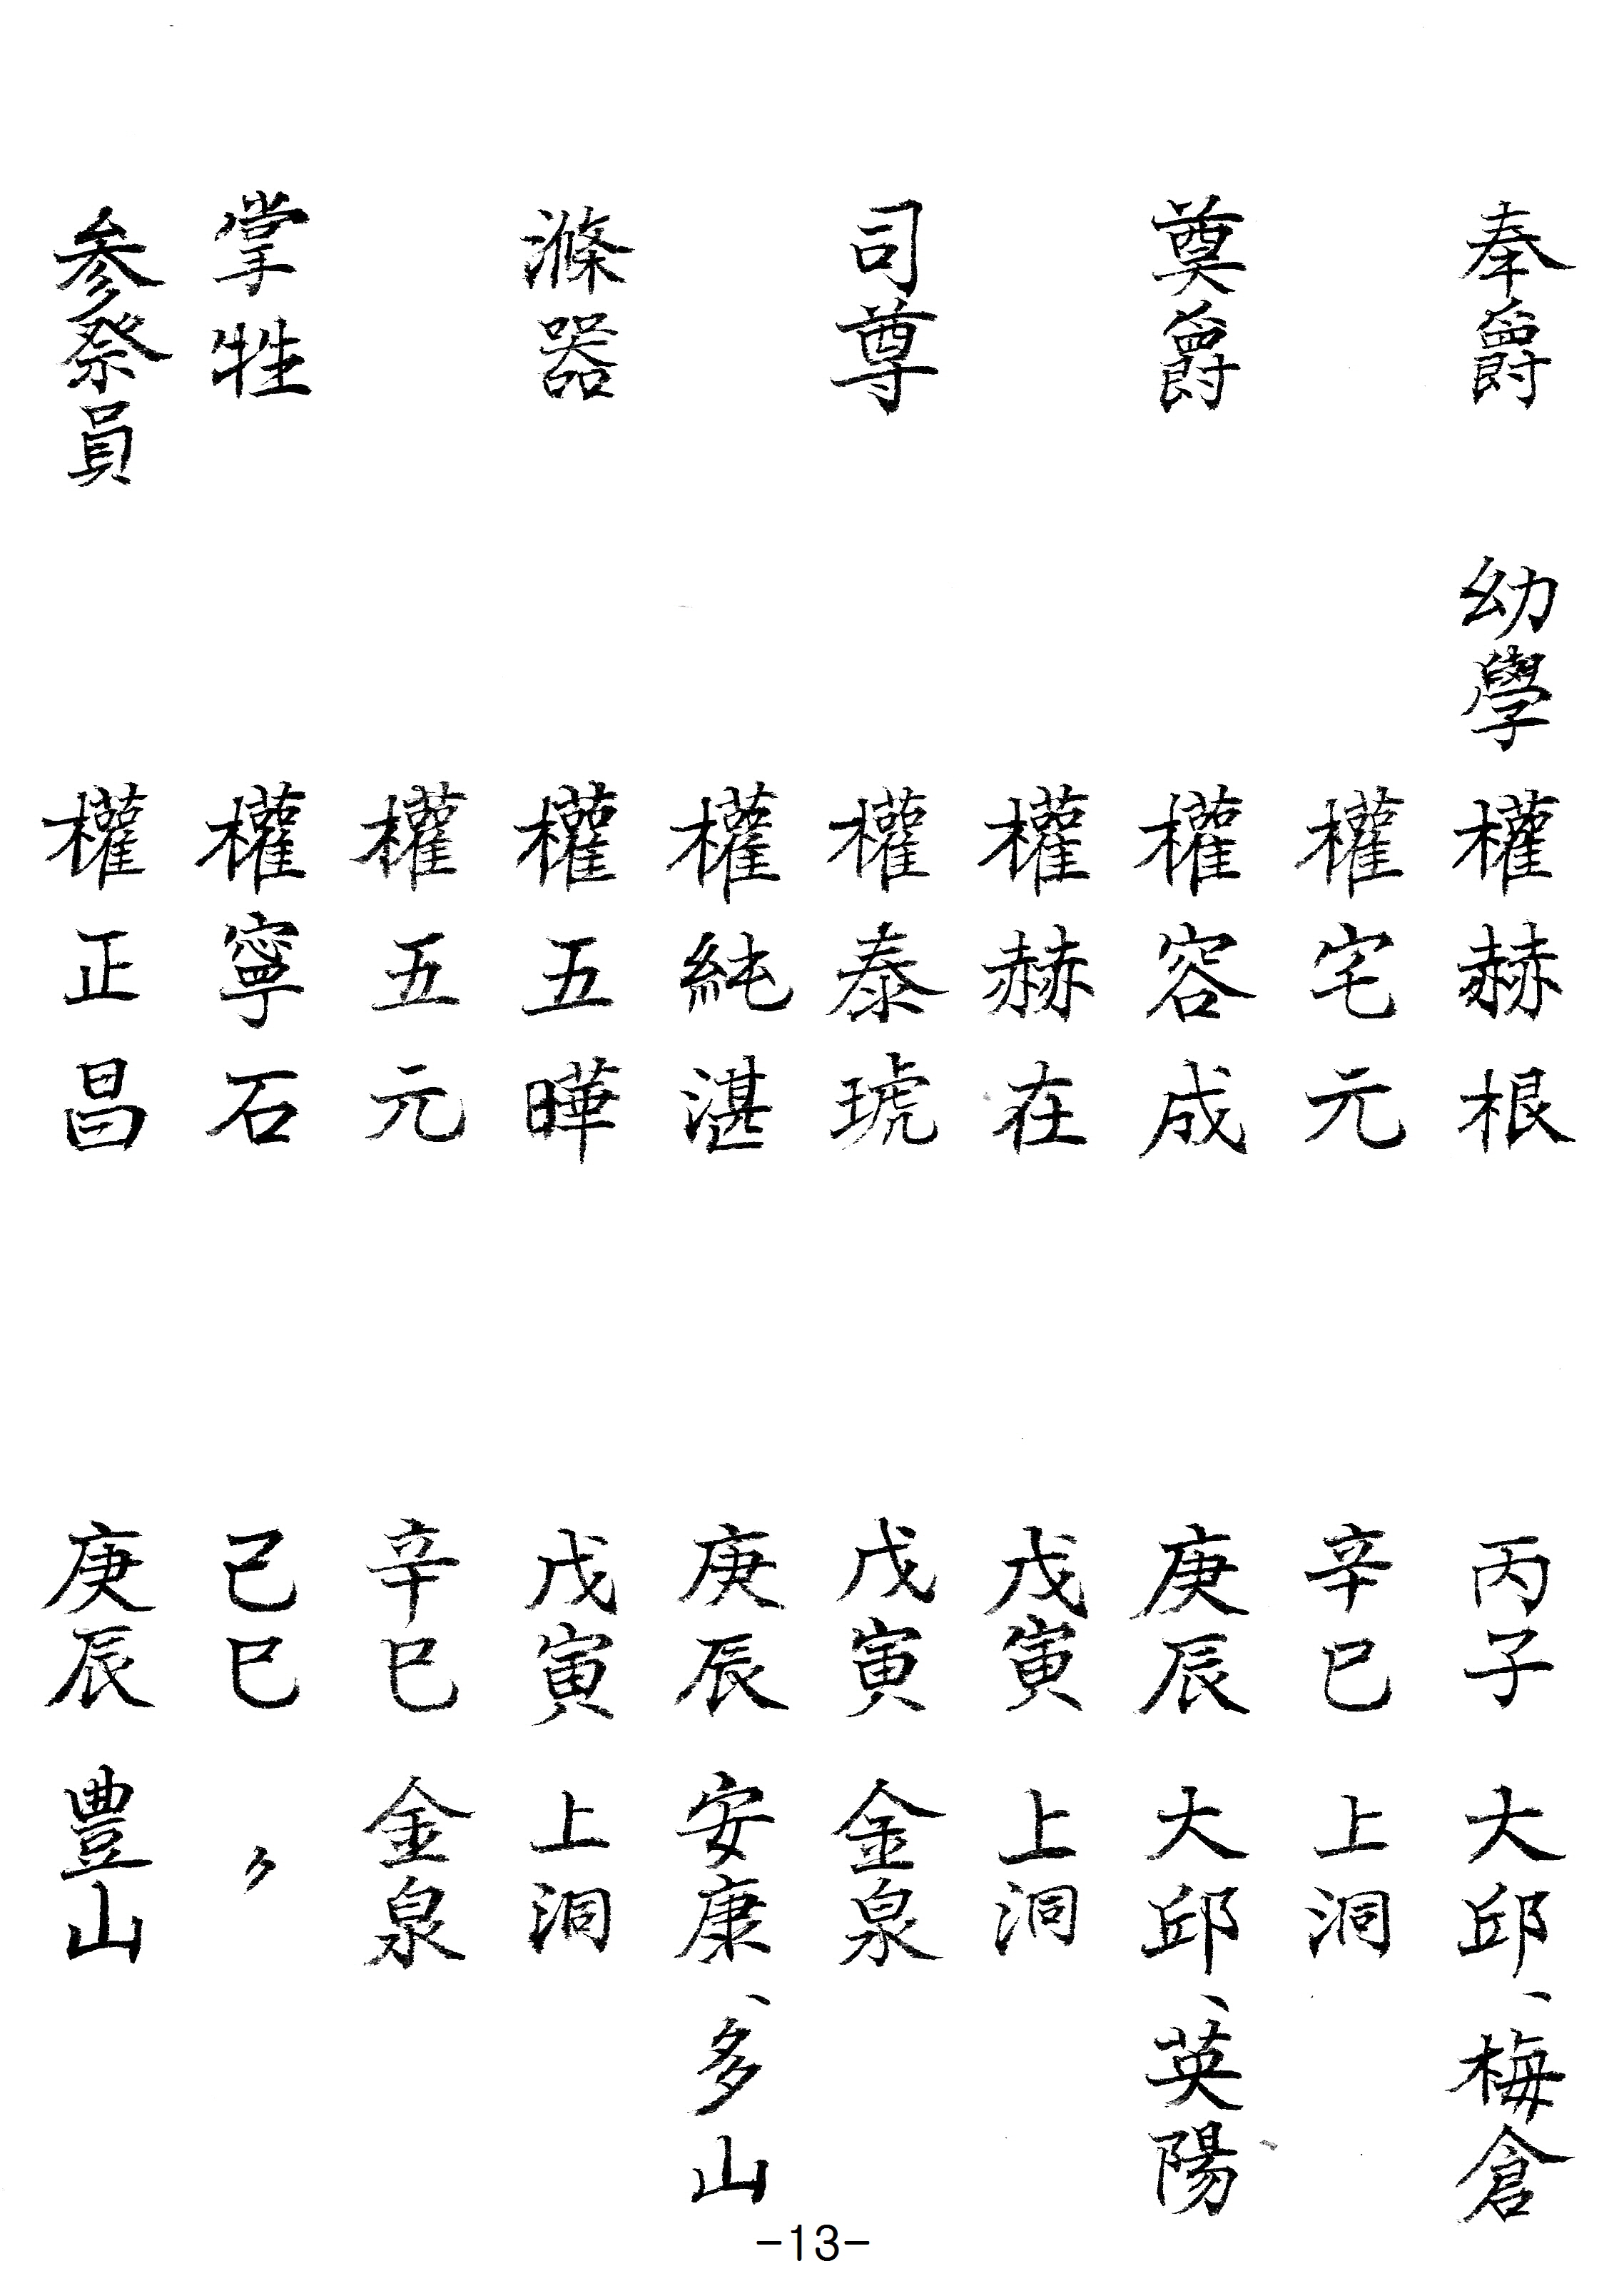 奉爵 幼學 權赫根 丙子 大邱、梅倉
權宅元 辛巳 上洞
奠爵 權容成 庚辰 大邱、英陽
權赫在 戊寅 上洞
司尊 權泰琥 戊寅 金泉
權純湛 庚辰 安康、多山
滌器 權五曄 戊寅 上洞
權五元 辛巳 金泉
掌牲 權寧石 己巳 〃
参祭員 權正昌 庚辰 豊山
-13-